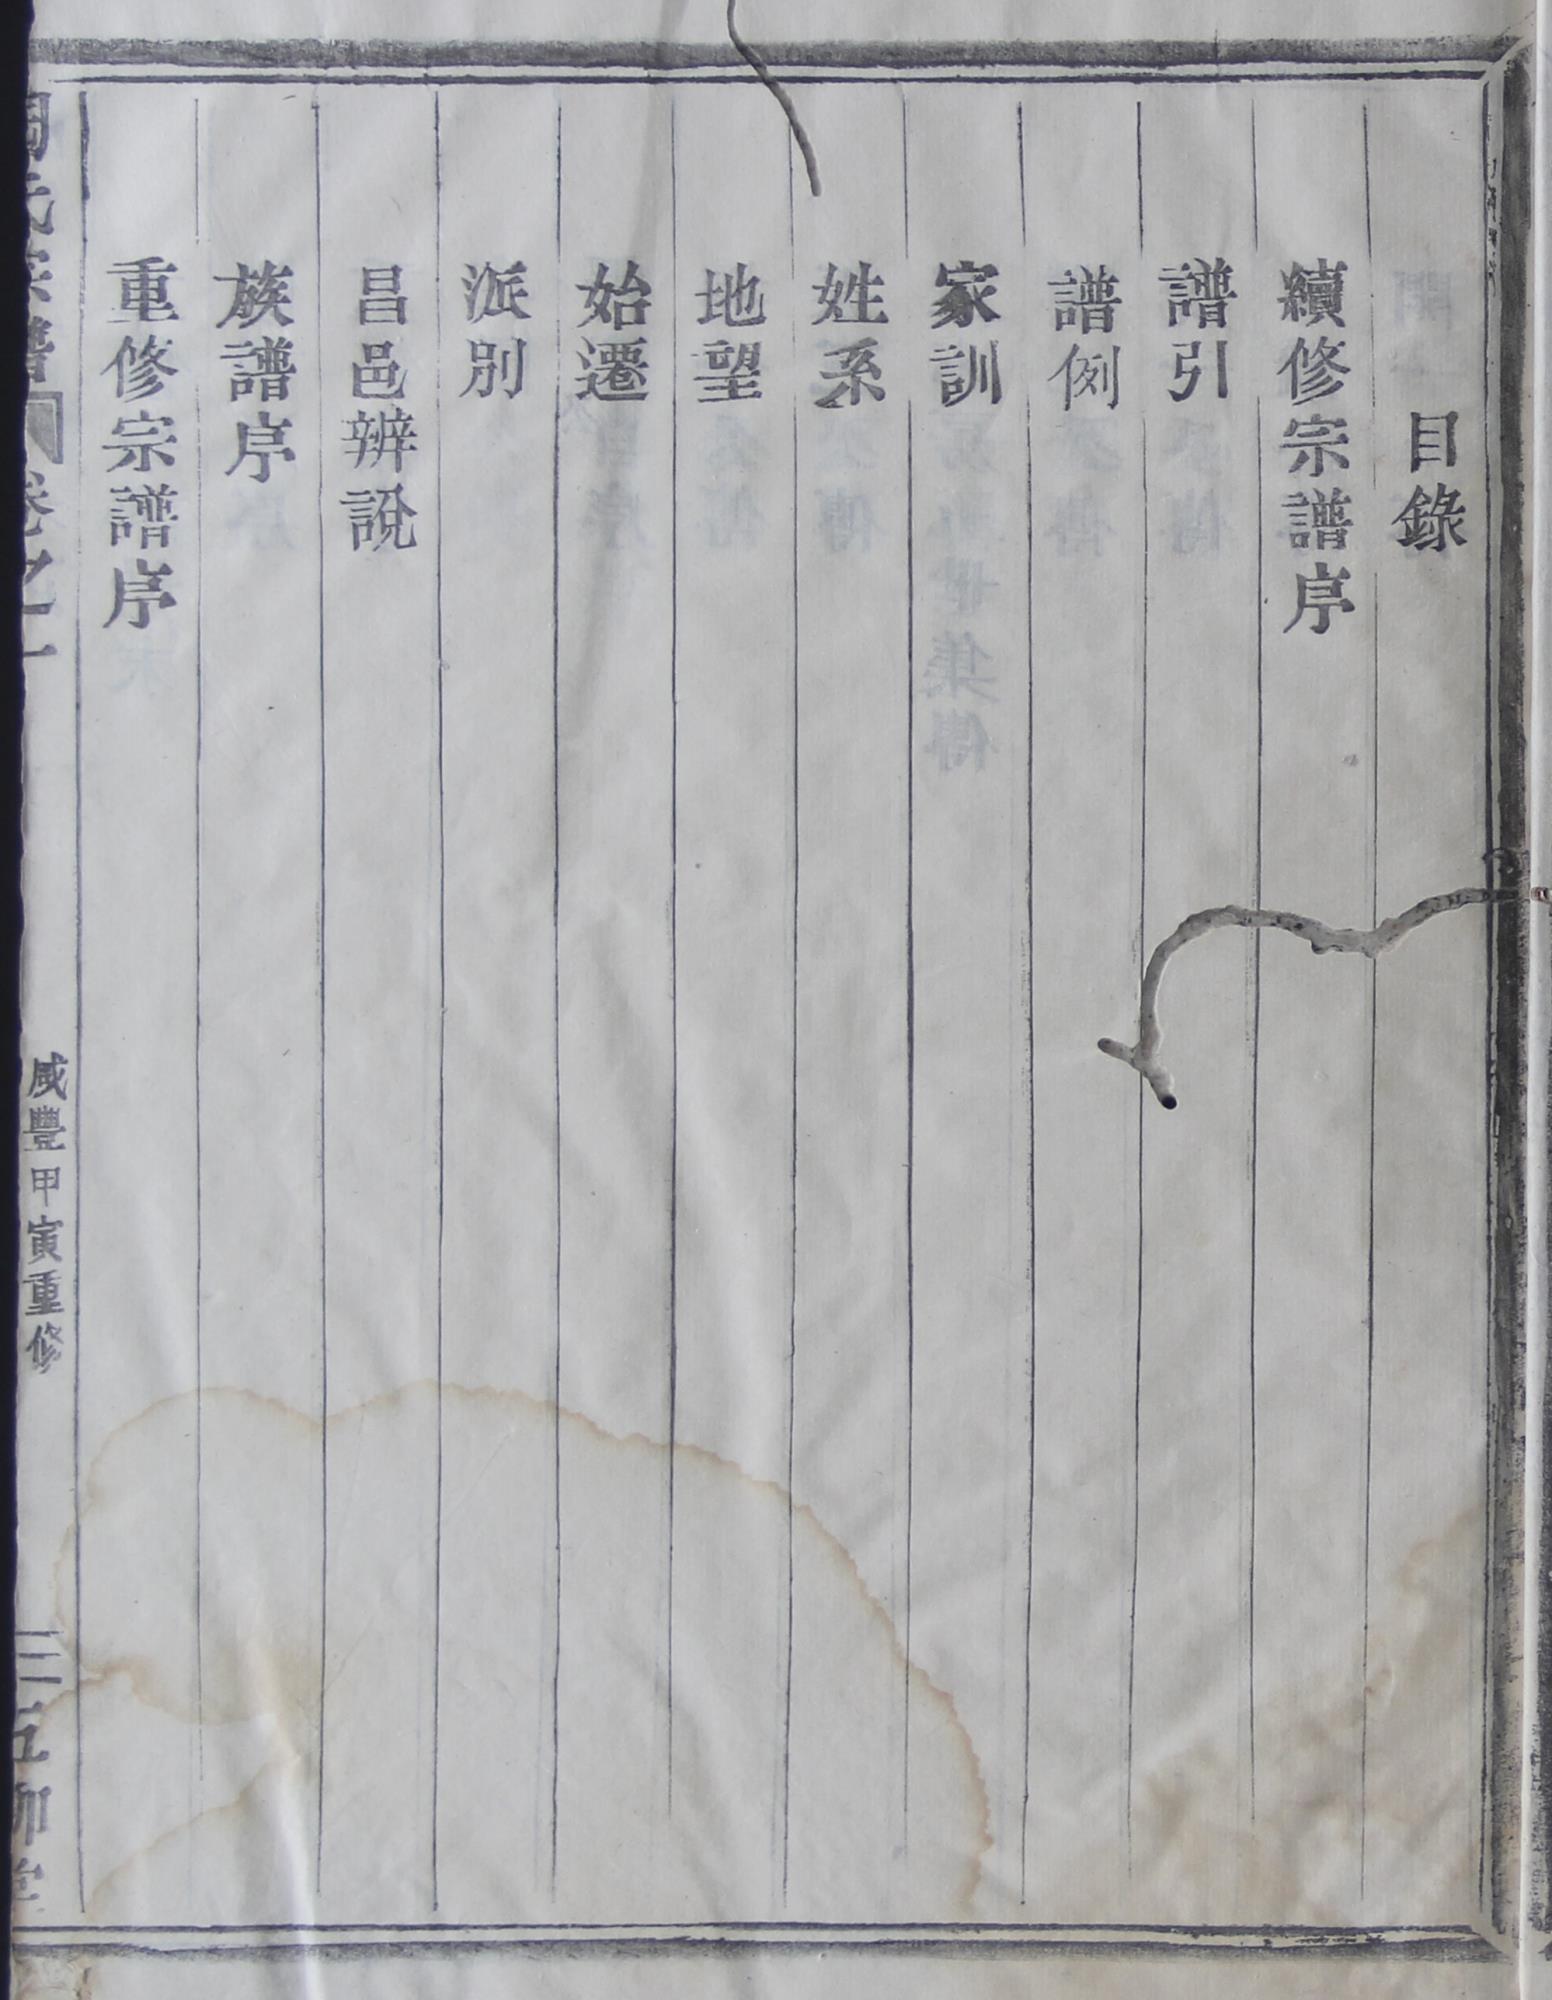 目錄
續修宗譜序
譜引
譜例
家訓
姓系
地望
始遷
派別
昌邑辨說
族譜序
重修宗譜序
陶氏宗譜 卷之一 咸豐甲寅重修 五柳堂